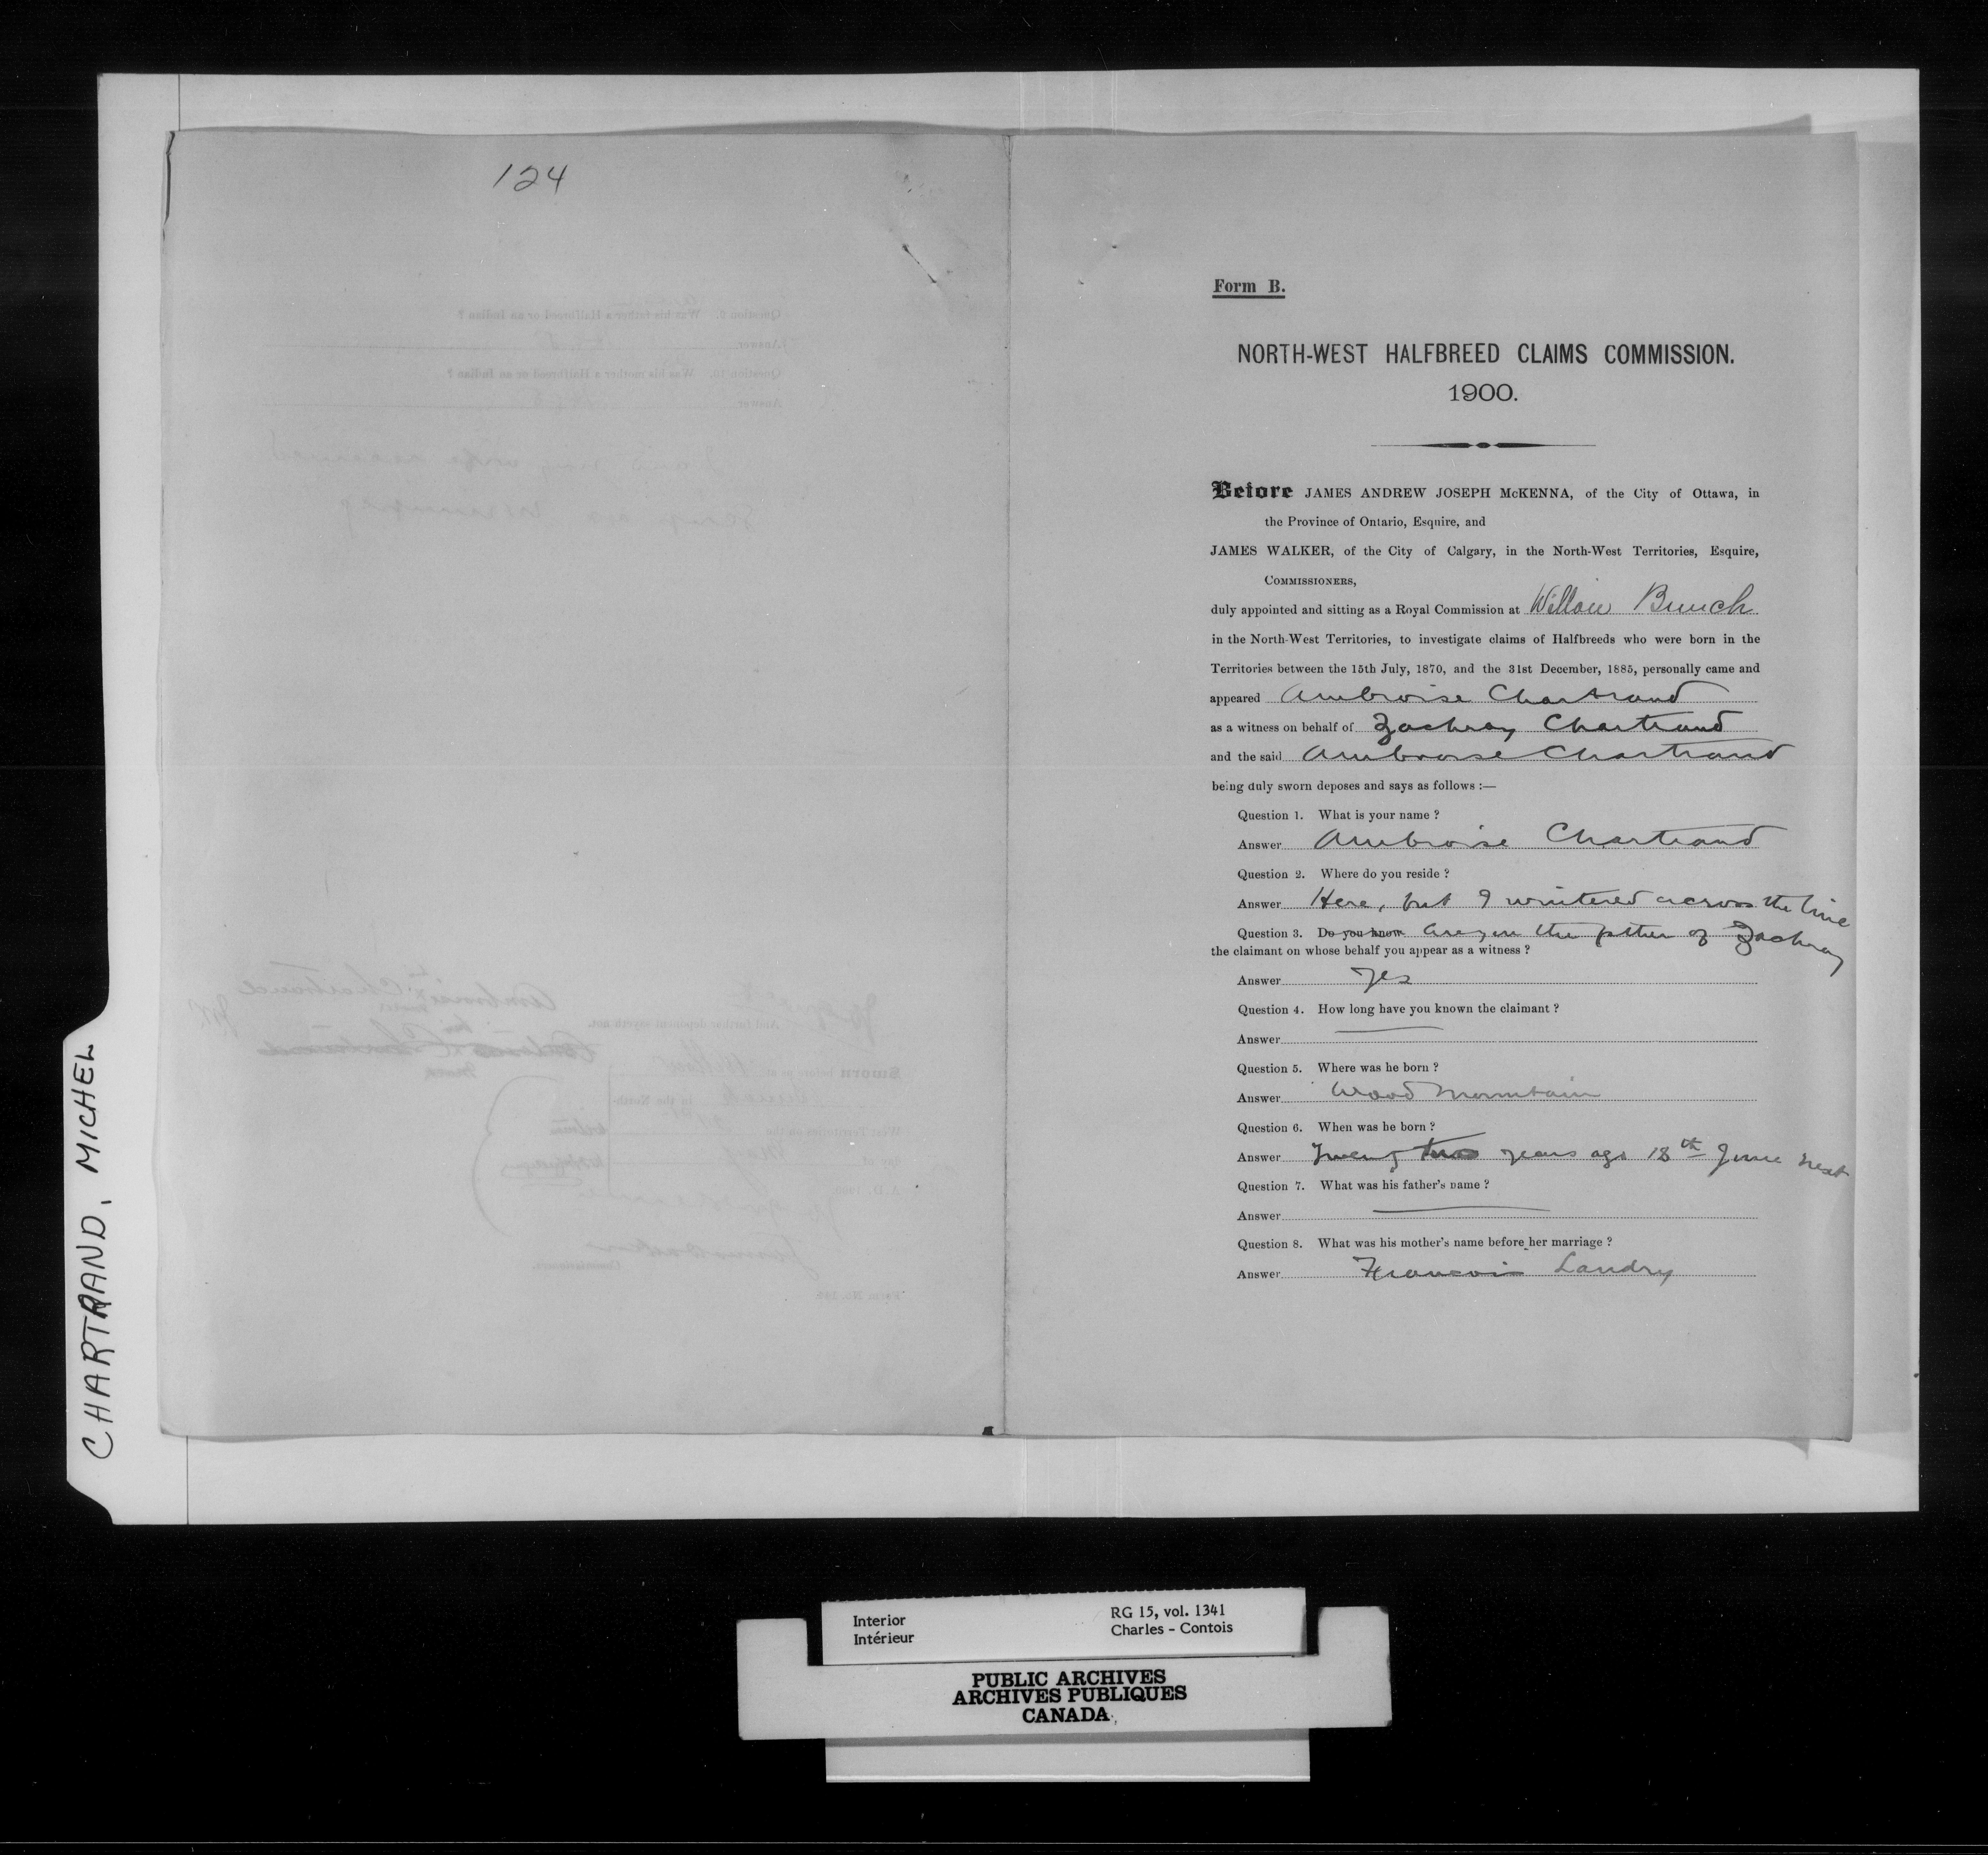 124
Form B.
NORTH-WEST HALFBREED CLAIMS COMMISSION.
1900.
Before JAMES ANDREW JOSEPH McKENNA, of the City of Ottawa, in
the Province of Ontario, Esquire, and
JAMES WALKER, of the City of Calgary, in the North-West Territories, Esquire,
COMMISSIONERS,
duly appointed and sitting as a Royal Commission at Willow Bunch
in the North-West Territories, to investigate claims of Halfbreeds who were born in the
Territories between the 15th July, 1870, and the 31st December, 1885, personally came and
appeared Ambroise Chartrand
as a witness on behalf of Zachray Chartrand
and the said Ambroise Chartrand
being duly sworn deposes and says as follows :—
Question 1. What is your name ?
Answer Ambroise Chartrand
Question 2. Where do you reside ?
Answer Here, but I wintered across the line
Question 3. Do you know Are you the father of Zachray
the claimant on whose behalf you appear as a witness ?
Answer Yes
Question 4. How long have you known the claimant ?
Answer
Question 5. Where was he born ?
Answer Wood Mountain
Question 6. When was he born ?
Answer Twenty two years ago 18th June next
Question 7. What was his father's name ?
Answer
Question 8. What was his mother's name before her marriage ?
Answer Francois Landry
CHARTRAND, MICHEL
Interior
Intérieur
RG 15, vol. 1341
Charles - Contois
PUBLIC ARCHIVES
ARCHIVES PUBLIQUES
CANADA